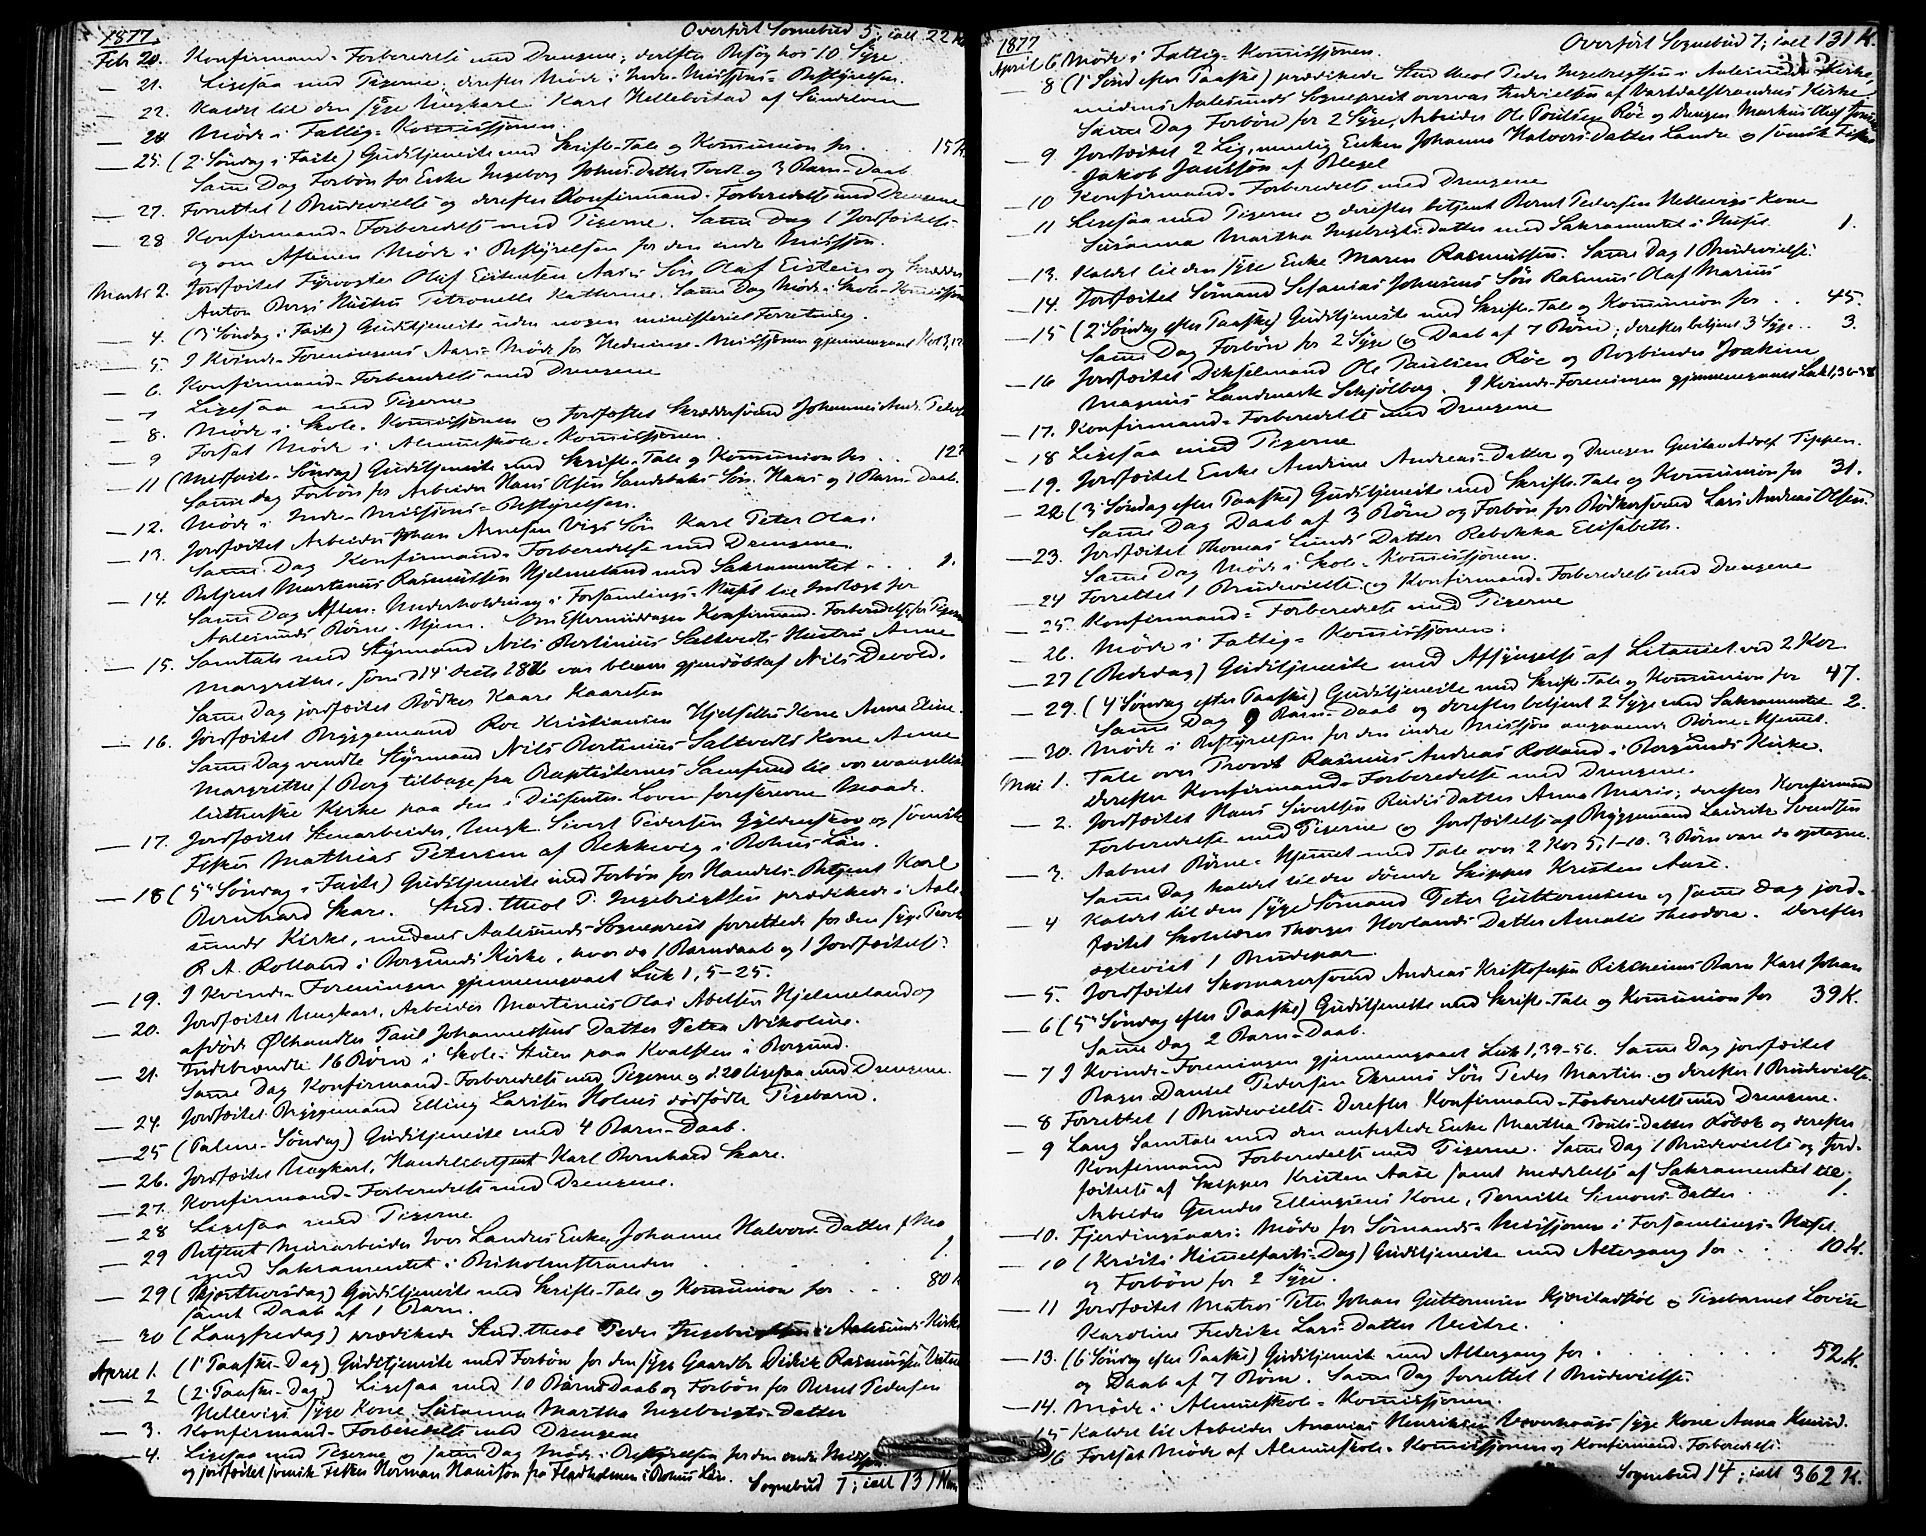 1877.
Overført Sognebud 5, ialt 22 K.
Febr 20. Konfirmand-Forberedelse med Drengene; derefter Besøg hos 10 Syge.
— 21. Ligesaa med Pigerne; derefter Møde i Indre-Missions-Bestyrelsen
— 22. Kaldet til den syge Ungkarl Karl Hellebostad af
— 24 Møde i Fattig-Komissjonen
— 25. (2 Søndag i Faste) Gudstjeneste med Skrifte-Tale og Komunion for . . 15 K.
Same Dag Forbøn for Enke Ingeborg Johns-Datter og 3 Barn-Daab
— 27. Forrettet 1 Brudevielse og derefter Konfirmand-Forberedelse med Drengene
— 28 Konfirmand-Forberedelse med Pigerne. Same Dag 1 Jordfæstelse
og om Aftenen Møde i Bestyrelsen for den indre Missjon.
Marts 2. Jordfæstet Olaf Søn Olaf Eistein og
Anton Bergs Hustru Petronelle Kathrine. Same Dag Møde i Skole-Komissjon
— 4. (3 Søndag i Faste) Gudstjeneste uden nogen ministeriel Forretning.
— 5. I Kvinde-Foreningens Aars-Møde for Hedninge-Missjonen gjennemgaaet
— 6. Konfirmand-Forberedelse med Drengene
— 7 Ligesaa med Pigerne
— 8. Møde i Skole-Komissjonen og Jordfæstet Skræddersvend Johannes
— 9 Forsat Møde i Almueskole-Komissjonen.
— 11 (Midfaste-Søndag) Gudstjeneste med Skrifte-Tale og Komunion for . . 12
Same dag Forbøn for Arbeider Hans Olsen Søn Hans og 1 Barn-Daab.
— 12. Møde i Indre-Missjons-Bestyrelsen.
— 13. Jordfæstet Arbeider Johan Arnesen Vigs Søn Karl Peter Olai.
Same Dag Konfirmand-Forberedelse med Drengene.
— 14. Betjent Martinus Rasmussen Hjelmeland med Sakramentet . . 1.
Same Dag Aften-Underholdning i Forsamlings-Huset til Indtægt for
Aalesunds Børne-Hjem. Om Eftermiddagen Konfirmand-Forberedelse for Pigerne
— 15. Samtale med Styrmand Nils Bertinius Saltvedts Hustru Anne
Margrethe, som d 14 var bleven gjendøbt af Nils Devold.
Same Dag jordfæstet Bødker Kaare Kaaresen
— 16. Jordfæstet Bryggemand Roe Kristiansen Hjelsets Kone Anna Eline.
Same Dag vendte Styrmand Nils Bertinius Saltvedts Kone Anne
Margrethe f Berg tilbage fra Baptisternes Samfund til vor evangelisk
lutherske Kirke paa den i Dissenter-Loven foreskrevne Maade.
— 17. Jordfæstet Stenarbeider, Ungk. Sivert Pedersen Gyldenskov og svensk
Fisker Mathias Petersen af Bekkevig i Bohus Län.
— 18 (5 Søndag i Faste) Gudstjeneste med Forbøn for Handels-Betjent Karl
Bernhard Skare. Stud. theol P. Ingebrigtsen prædikede i Aale-
sunds Kirke, medens Aalesunds Sognepræst forrettede for den syge Provst
R. A. Rolland i Borgunds Kirke, hvor da 1 Barnedaab og 1 Jordfæstelse.
— 19. I Kvinde-Foreningen gjennemgaaet Luk 1, 5-25.
— 20. Jordfæstet Ungkarl, Arbeider Martinus Olai Abelsen Hjelmeland og
afdøde Ølhandler Paul Johannessens Datter Petra Nikoline.
— 21. Indebrændte 16 Børn i Skole-Stuen paa Kvalsten i Borgund.
Same Dag Konfirmand-Forberedelse med Pigerne og d. 20 ligesaa med Drengene.
— 24. Jordfæstet Bryggemand Elling Larsen Holms dødfødte Pigebarn.
— 25 (Palme-Søndag) Gudstjeneste med 4 Barn-Daab.
— 26. Jordfæstet Ungkarl, Handelsbetjent Karl Bernhard Skare.
— 27. Konfirmand-Forberedelse med Drengene.
— 28 Ligesaa med Pigerne
— 29 Betjent Murarbeider Iver Landres Enke, Johanne Halvors-Datter f Mo
med Sakramentet i . . 1.
— 29 (Skjærthorsdag) Gudstjeneste med Skrifte-Tale og Komunion for . . 80 K
samt Daab af 1 Barn.
— 30 (Langfredag) prædikede Stud. theol Peder Ingebrigtsen i Aalesunds Kirke
April 1. (1 Paaske-Dag) Gudstjeneste med Forbøn for den syge Gaardbr Didrik Rasmussen
— 2 (2 Paaske-Dag) Ligesaa med 10 Børns Daab og Forbøn for Bernt Pedersen
Hellevigs syge Kone Susanna Martha Ingebrigts-Datter
— 3. Konfirmand-Forberedelse med Drengene
— 4. Ligesaa med Pigerne og same Dag Møde i Bestyrelsen for den indre Missjon
og jordfæstet svensk Fisker Herman Hansson fra Flatholmen i Bohus Län.
Sognebud 7; ialt 131 Kom
1877
Overført Sognebud 7; ialt 131 K.
313
April 6 Møde i Fattig-Komissjonen.
— 8 (1 Sønd efter Paaske) prædikede Stud theol Peder Ingebrigtsen i Aalesunds Kirke,
medens Aalesunds Sognepræst overvar Indvielsen af Vartdalstrandens Kirke
Same Dag Forbøn for 2 Syge, Arbeider Ole Poulsen Røe og Drengen Markus Olaf
— 9 Jordfæstet 2 Lig, nemlig Enken Johanne Halvors-Datter Landre og svensk Fisker
Jakob Jansson af
— 10 Konfirmand-Forberedelse med Drengene
— 11 Ligesaa med Pigerne og derefter betjent Bernt Pedersen Hellevigs Kone
Susanna Martha Ingebrigts-Datter med Sakramentet i Huset 1.
— 13. Kaldet til den syge Enke Maren Rasmussen. Same Dag 1 Brudevielse.
— 14. Jordfæstet Sømand Johnsens Søn Rasmus Olaf Marius
— 15 (2 Søndag efter Paaske) Gudstjeneste med Skrifte-Tale og Komunion for . . 45.
Same Dag Forbøn for 2 Syge og Daab af 7 Børn; derefter betjent 3 Syge . . 3.
— 16 Jordfæstet Ole Paulsen Røe og Bogbinder Joakim
Magnus Landmark Schjølberg. I Kvinde-Foreningen gjennemgaaet Luk 1, 26-38
— 17. Konfirmand-Forberedelse med Drengene
— 18 Ligesaa med Pigerne
— 19. Jordfæstet Enke Andrine Andreas-Datter og Drengen Gustav Adolf Tippen.
— 22 (3 Søndag efter Paaske) Gudstjeneste med Skrifte-Tale og Komunion for 31.
Same Dag Daab af 3 Børn og Forbøn for Bødkersvend Lars Andreas Olsen.
— 23. Jordfæstet Thomas Lunds Datter Rebekka Elisabeth.
Same Dag Møde i Skole-Komissjonen.
— 24 Forrettet 1 Brudevielse og Konfirmand-Forberedelse med Drengene
— 25. Konfirmand-Forberedelse med Pigerne
— 26. Møde i Fattig-Komissjonen.
— 27 (Bededag) Gudstjeneste med Afsyngelse af Litaniet ved 2 Kor
— 29. (4 Søndag efter Paaske) Gudstjeneste med Skrifte-Tale og Komunion for 47.
Same Dag 9 Barn-Daab og derefter betjent 2 Syge med Sakramentet 2.
— 30. Møde i Bestyrelsen for den indre Missjon angaaende Børne-Hjemet.
Mai 1. Tale over Provst Rasmus Andreas Rolland i Borgunds Kirke.
Derefter Konfirmand-Forberedelse med Drengene.
— 2. Jordfæstet Hans Sivertsen Datter Anna Marie; derefter Konfirmand
Forberedelse med Pigerne og Jordfæstelse af Bryggemand Laurits Svendsen
— 3. Aabnet Børne-Hjemet med Tale over 2 Kor 5, 1-10. 3 Børn vare da optagne.
Same Dag kaldet til den døende Skipper Kristen Aase.
— 4 Kaldet til den syge Sømand Peter Guttormsen og same Dag jord-
fæstet Skolelærer Thorger Hovlands Datter Amalie Theodora. Derefter
ægteviet 1 Brudepar.
— 5. Jordfæstet Skomagersvend Andreas Kristofersen Barn Karl Johan
— 6 (5 Søndag efter Paaske) Gudstjeneste med Skrifte-Tale og Komunion for 39 K.
Same Dag 2 Barn-Daab.
— 7 I Kvinde-Foreningen gjennemgaaet Luk 1, 39-56. Same Dag jordfæstet
Bager Daniel Pedersen Ekrems Søn Peder Martin og derefter 1 Brudevielse.
— 8 Forrettet 1 Brudevielse. Derefter Konfirmand-Forberedelse med Drengene.
— 9 Lang Samtale med den anfegtede Enke Martha Pouls-Datter og derefter
Konfirmand Forberedelse med Pigerne. Same Dag 1 Brudevielse og Jord-
fæstelse af Skipper Kristen Aase samt Meddelelse af Sakramentet til
Arbeider Gunder Ellingsens Kone, Pernille Simons-Datter . 1.
— 10. Fjerdingsaars-Møde for Sømands-Missjonen i Forsamlings-Huset
— 10 (Kristi Himmelfarts-Dag) Gudstjeneste med Altergang for . . 10 K.
og Forbøn for 2 Syge.
— 11 Jordfæstet Matros Peter Johan Guttormsen og Pigebarnet Lovise
Karoline Fredrike Lars-Datter Vestre.
— 13. (6 Søndag efter Paaske) Gudstjeneste med Altergang for . . 52 K.
og Daab af 7 Børn. Same Dag forrettet 1 Brudevielse.
— 14. Møde i Almueskole-Komissjonen.
— 15 Kaldet til Arbeider Ananias Henriksen syge Kone Anna Knuds
— 16 Fortsat Møde af Almueskole-Komissjonen og Konfirmand-Forberedelse.
Sognebud 14; ialt 362 K.